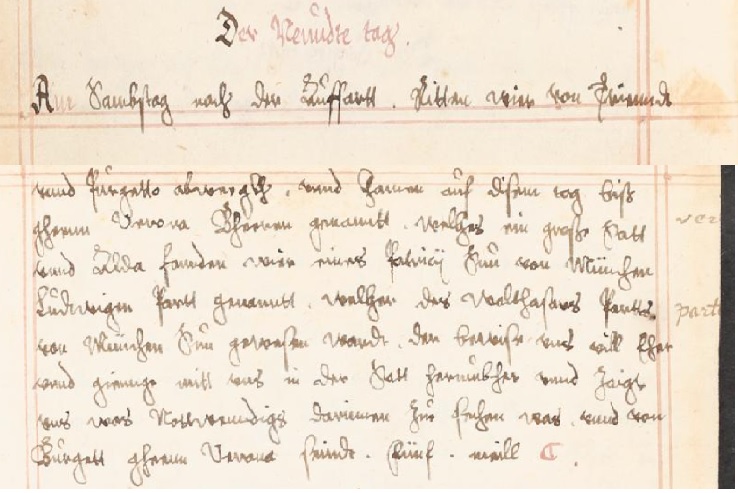 Der Neundte tag.
Am Sambstag nach der Auffartt. Ritten wier von Trienndt
vnnd Purgetto abwergkh, vnnd kamen auf disem tag biß
ghenn Verona Bheren genanntt. welhes ein große Statt
vnnd Alda fannden wier eines Patricÿ Sun von München
Ludwigen Partt genanntt. welher des Walthasars Partts
von München Sun gewesen wardt. der beweist vns vill Eher
vnnd gienge mitt vns in der Statt herumbher vnnd Zaigt
vns was Nottwenndigs darinnen Zu sehen was. vnnd von
Burgett ghenn Verona seindt. Fünf. meill C.
ver
part